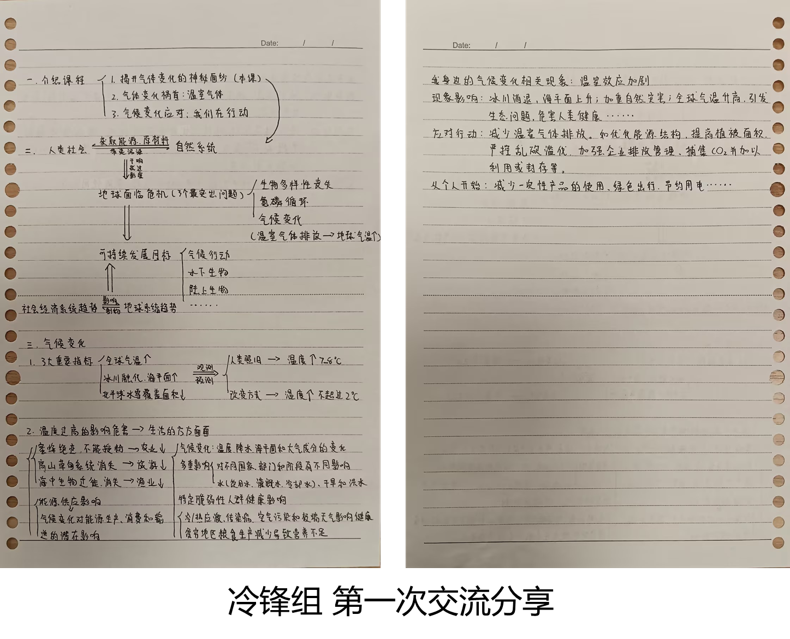 Date: / /
一. 介绍课程
1. 揭开气候变化的神秘面纱（本课）
2. 气候变化祸首：温室气体
3. 气候变化应对，我们在行动
二. 人类社会 获取能源、原材料 自然系统
地球面临危机（3个最突出问题）
生物多样性丧失
氮磷循环
气候变化
（温室气体排放→地球气温↑）
可持续发展目标
气候行动
水下生物
陆上生物
······
社会经济系统趋势 影响 地球系统趋势
三. 气候变化
1. 3大重要指标
全球气温↑
冰川融化,海平面↑
北半球冰雪覆盖面积↓
观测
预测
人类照旧 → 温度↑
改变方式 → 温度↑ 不超过2℃
2. 温度过高的影响危害 → 生活的方方面面
→ 农业↓
高山草甸系统消失 → 旅游↓
海中生物迁徙,消失 → 渔业↓
能源供应影响
气候变化对能源生产、消费和输
送的潜在影响
气候变化：温度 降水 海平面和大气成分的变化
多重影响
对不同国家、部门和阶段有不同影响
水(饮用水、灌溉水、冷却水)、干旱和洪水
特定脆弱性人群健康影响
冷/热应激,传染病,空气污染和极端天气影响健康
贫穷地区粮食生产减少导致营养不足
Date: / /
我身边的气候变化相关现象：温室效应加剧
现象影响：冰川消退，海平面上升；加重自然灾害；全球气温升高,引发
生态问题,危害人类健康······
应对行动：减少温室气体排放，如优化能源结构，提高植被面积，
严控乱砍滥伐，加强企业排放管理，捕集CO₂并加以
利用或封存等。
从个人开始：减少一次性产品的使用,绿色出行,节约用电······
冷锋组 第一次交流分享